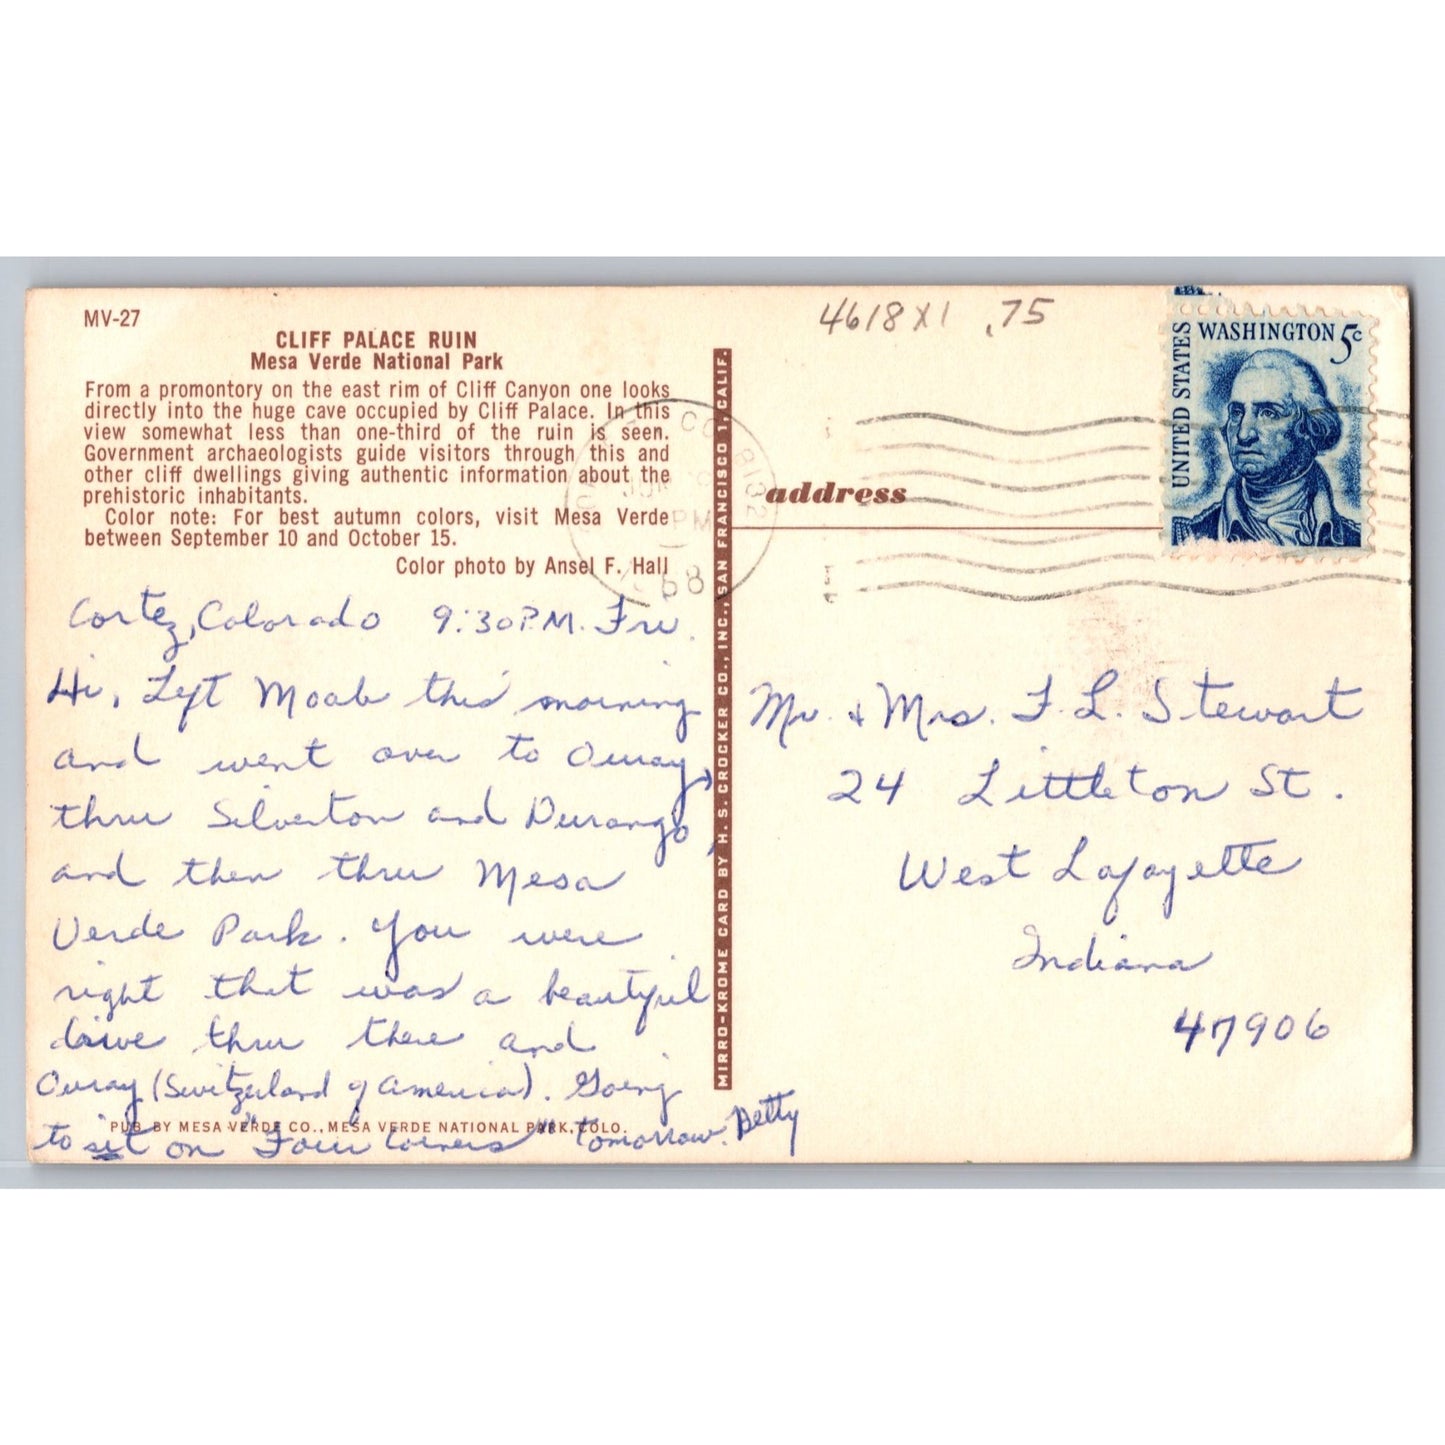 MV-27
CLIFF PALACE RUIN
Mesa Verde National Park
From a promontory on the east rim of Cliff Canyon one looks
directly into the huge cave occupied by Cliff Palace. In this
view somewhat less than one-third of the ruin is seen.
Government archaeologists guide visitors through this and
other cliff dwellings giving authentic information about the
prehistoric inhabitants.
Color note: For best autumn colors, visit Mesa Verde
between September 10 and October 15.
Color photo by Ansel F. Hall
Cortez, Colorado 9:30 P.M. Fri.
Hi, Left Moab this morning
and went over to Ouray,
thru Silverton and Durango,
and then thru Mesa
Verde Park. You were
right that was a beautiful
drive thru there and
Ouray (Switzerland of America). Going
to sit on "Four Corners" tomorrow. Betty
PUB. BY MESA VERDE CO., MESA VERDE NATIONAL PARK, COLO.
MIRRO-KROME CARD BY H. S. CROCKER CO., INC., SAN FRANCISCO 1, CALIF.
4618 X1 .75
UNITED STATES
WASHINGTON 5c
CO 8132
PM
68
address
Mr. & Mrs. F. L. Stewart
24 Littleton St.
West Lafayette
Indiana
47906